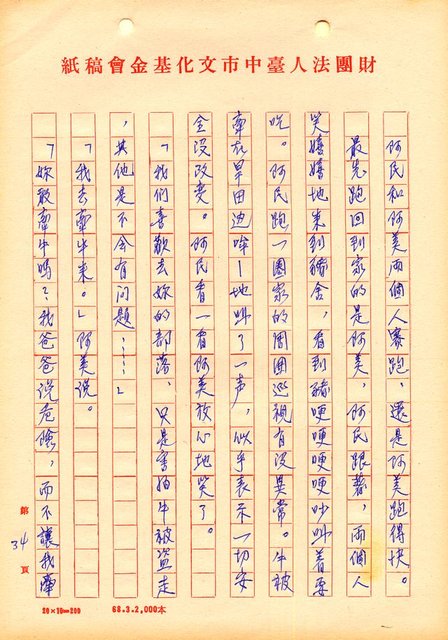 財團法人臺中市文化基金會稿紙
阿民和阿美兩個人賽跑,還是阿美跑得快。
最先跑回到家的是阿美,阿民跟著,兩個人
笑嘻嘻地來到豬舍,看到豬哽哽哽吵叫着要
吃。阿民跑一圈家的周圍巡視有沒異常。牛被
牽在旱田边哞—地叫了一声,似乎表示一切安
全沒改变。阿民看一看阿美放心地笑了。
「我们喜歡去妳的部落,只是害怕牛被盗走
,其他是不会有问題……」
「我去牽牛來。」阿美说。
「妳敢牽牛嗎?我爸爸说危險,而不讓我牽
第34頁
20×10=200
68.3.2,000本